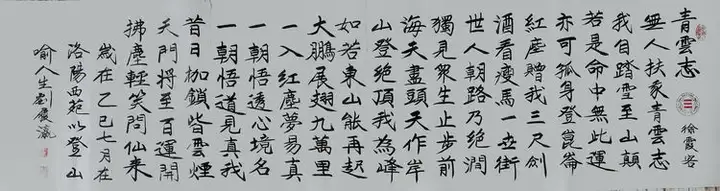 青雲志
徐霞客
無人扶家青雲志
我自踏雪至山巔
若是命中無此運
亦可孤身登崑崙
紅塵贈我三尺劍
酒看瘦馬一世街
世人朝路乃絕澗
獨見眾生止步前
海天盡頭天作岸
山登絕頂我為峰
如若東山能再起
大鵬展翅九萬里
一入紅塵夢易真
一朝悟透心境名
一朝悟道見真我
昔日枷鎖皆雲煙
天門將至百運開
拂塵輕笑問仙來
歲在乙巳七月在
洛陽西苑以登山
喻人生劉俊瀛